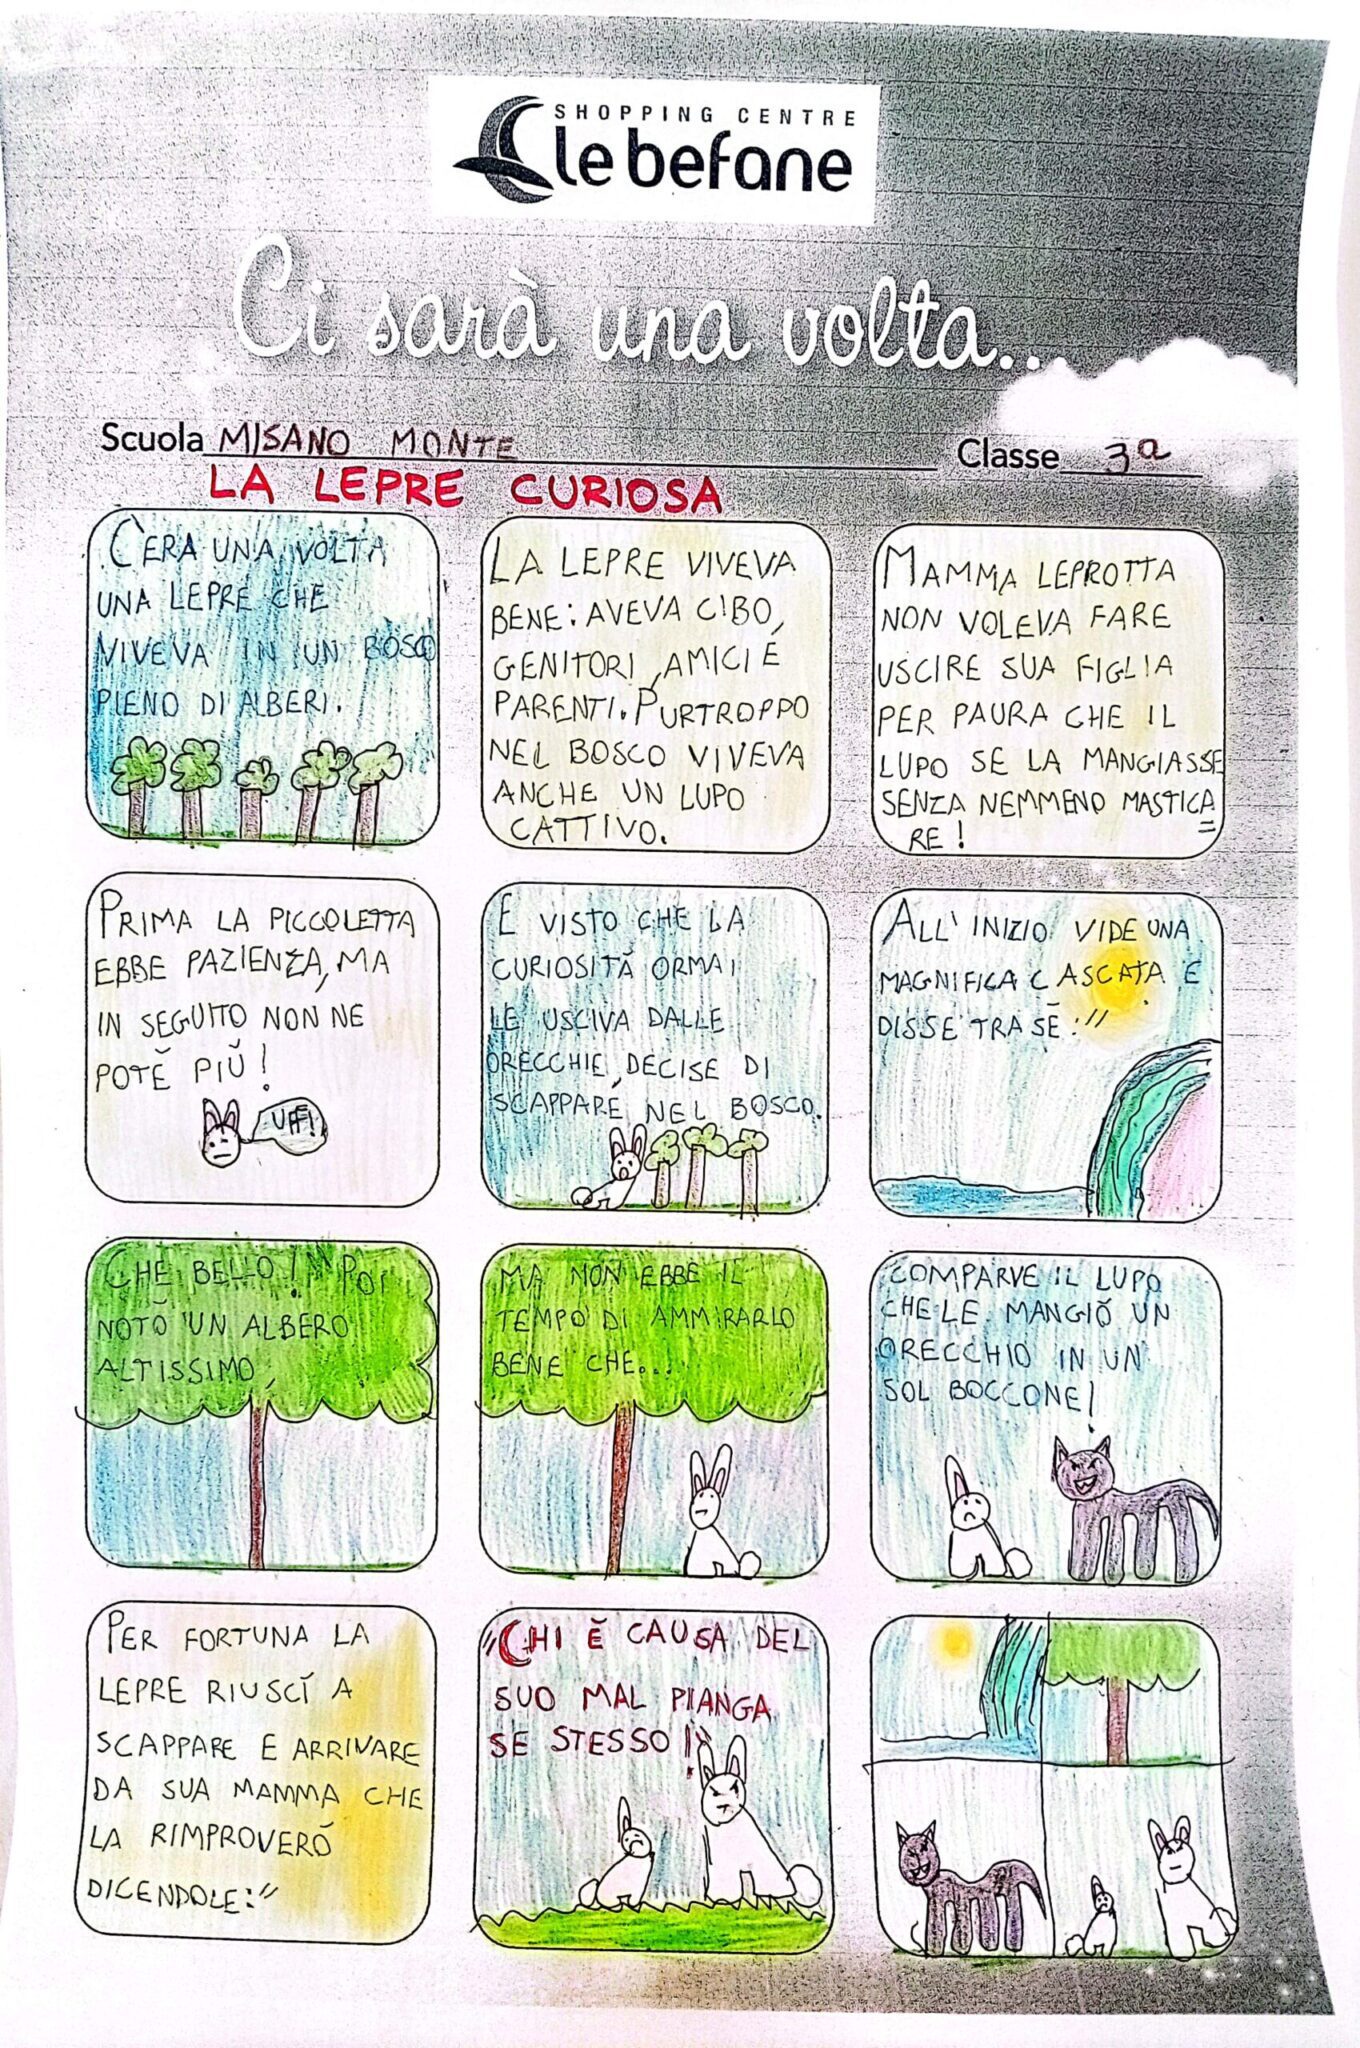 SHOPPING CENTRE
le befane
Ci sarà una volta...
Scuola MISANO MONTE Classe 3a
LA LEPRE CURIOSA
C'ERA UNA VOLTA
UNA LEPRE CHE
VIVEVA IN UN BOSCO
PIENO DI ALBERI.
LA LEPRE VIVEVA
BENE: AVEVA CIBO,
GENITORI, AMICI E
PARENTI. PURTROPPO
NEL BOSCO VIVEVA
ANCHE UN LUPO
CATTIVO.
MAMMA LEPROTTA
NON VOLEVA FARE
USCIRE SUA FIGLIA
PER PAURA CHE IL
LUPO SE LA MANGIASSE
SENZA NEMMENO MASTICA=
RE!
PRIMA LA PICCOLETTA
EBBE PAZIENZA, MA
IN SEGUITO NON NE
POTÉ PIÚ!
UFF!
E VISTO CHE LA
CURIOSITÁ ORMAI
LE USCIVA DALLE
ORECCHIE, DECISE DI
SCAPPARE NEL BOSCO.
ALL'INIZIO VIDE UNA
MAGNIFICA CASCATA E
DISSE TRA SÉ: "
CHE BELLO!" POI
NOTÓ UN ALBERO
ALTISSIMO,
MA NON EBBE IL
TEMPO DI AMMIRARLO
BENE CHE...
COMPARVE IL LUPO
CHE LE MANGIÓ UN
ORECCHIO IN UN
SOL BOCCONE!
PER FORTUNA LA
LEPRE RIUSCÍ A
SCAPPARE E ARRIVARE
DA SUA MAMMA CHE
LA RIMPROVERÓ
DICENDOLE: "
"CHI É CAUSA DEL
SUO MAL PIANGA
SE STESSO!"